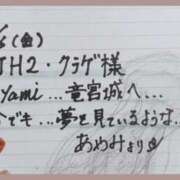 6(金)
TH2・クラゲ様
yami...竜宮城へ...
でも...夢を見ているような..
あめみより